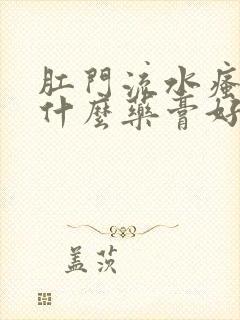 肛門流水瘙
什麼藥膏好
蓋茨